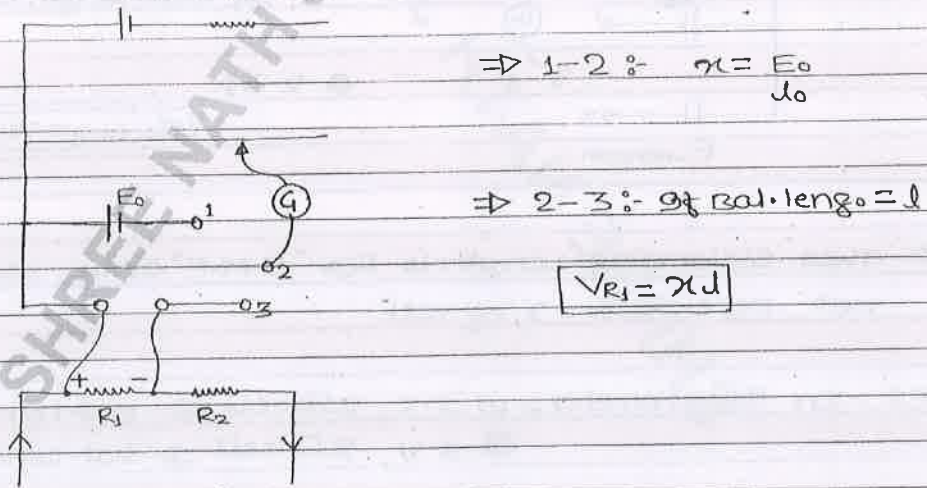 ⇒ 1-2 :- x = E₀
l₀
E₀
1
G
⇒ 2-3 :- If bal. leng. = l
2
3
V_R₁ = xl
+ -
R₁ R₂
SHREE NATH